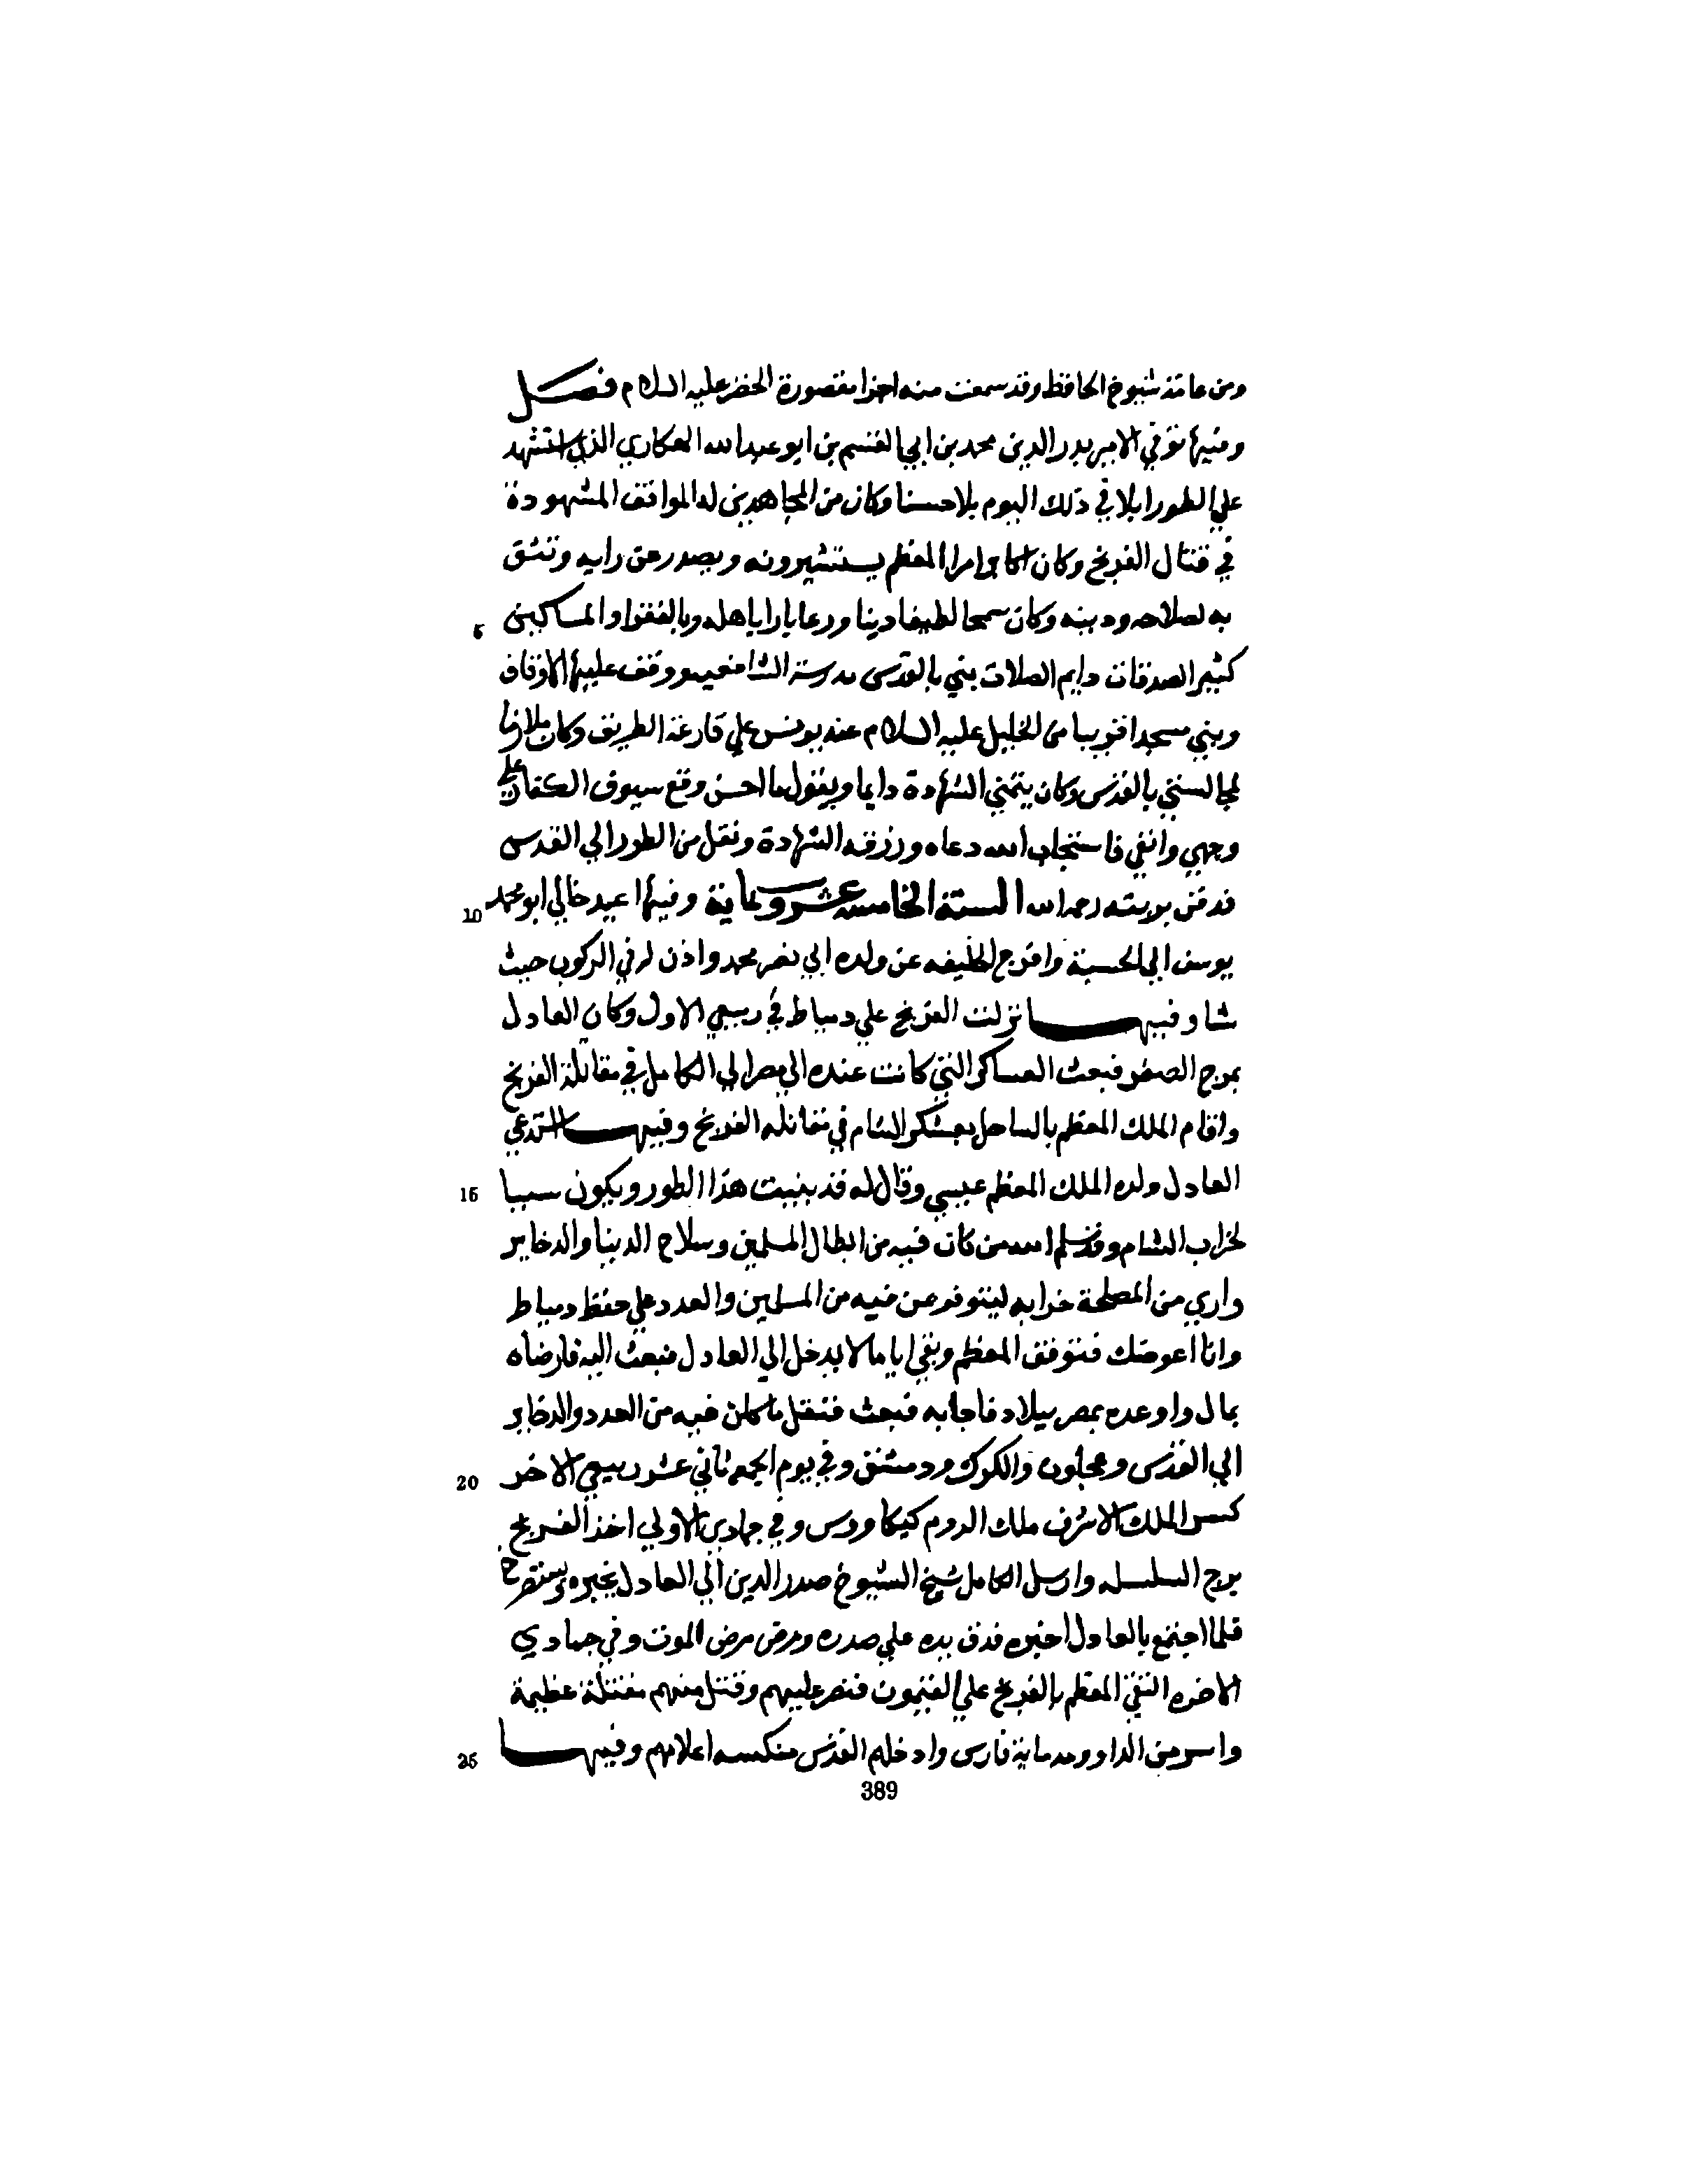 ومن عامة شيوخ الحافظ وقد سمعت منه اجزا بمقصورة الخضر عليه السلام فصل
وفيها توفي الامير بدر الدين محمد بن ابي القسم بن ابو عبدالله الهكاري الذي استشهد
علي الطور ابلا في ذلك اليوم بلا حسنا وكان من المجاهدين له المواقف المشهودة
في قتال الفرنج وكان اكابر امرا المعظم يستشيرونه ويصدر عن رايه وتثق
به لصلاحه ودينه وكان سمحا لطيفا دينا ورعا بارا باهله وبالفقرا والمساكين
5
كثير الصدقات دايم الصلات بني بالقدس مدرسة الشافعيه ووقف عليها الاوقاف
وبني مسجدا قريبا من الخليل عليه السلام عند يونس علي قارعة الطريق وكان ملازما
لمجالستي بالقدس وكان يتمني الشهادة دايما ويقول ما احسن وقع سيوف الكفار علي
وجهي وانفي فاستجاب الله دعاه ورزقه الشهادة ونقل من الطور الي القدس
فدفن بتربته رحمه الله السنة الخامسة عشر وستماية وفيها اعيد خالي ابو محمد
10
يوسف الي الحسبة وافرج الخليفه عن ولده ابي نصر محمد واذن له في الركوب حيث
شا وفيها نزلت الفرنج علي دمياط في ربيع الاول وكان العادل
بمرج الصفر فبعث العساكر التي كانت عنده الي مصر الي الكامل في مقاتلة الفرنج
واقام الملك المعظم بالساحل بعسكر الشام في مقاتله الفرنج وفيها استدعي
العادل ولده الملك المعظم عيسي وقال له قد بنيت هذا الطور ويكون سببا
15
لخراب الشام وقد سلم الله من كان فيه من ابطال المسلمين وسلاح الدنيا والدخاير
واري من المصلحة خرابه ليتوفر من فيه من المسلمين والعدد علي حفظ دمياط
وانا اعوضك فتوقف المعظم وبقي اياما لا يدخل الي العادل فبعث اليه فارضاه
بمال واوعده بمصر ببلاد فاجابه فبعث فنقل ما كان فيه من العدد والدخاير
الي القدس وعجلون والكرك ودمشق وفي يوم الجمعه ثاني عشر ربيع الاخر
20
كسر الملك الاشرف ملك الروم كيكاووس وفي جمادي الاولي اخذ الفرنج
برج السلسله وارسل الكامل شيخ الشيوخ صدر الدين الي العادل يخبره ويستصرخ
فلما اجتمع بالعادل اخبره فدق بيده علي صدره ومرض مرض الموت وفي جمادي
الاخره التقي المعظم بالفرنج علي القيمون فنصر عليهم وقتل منهم مقتلة عظيمة
واسر من الداوويه ماية فارس وادخلهم القدس منكسه اعلامهم وفيها
25
389